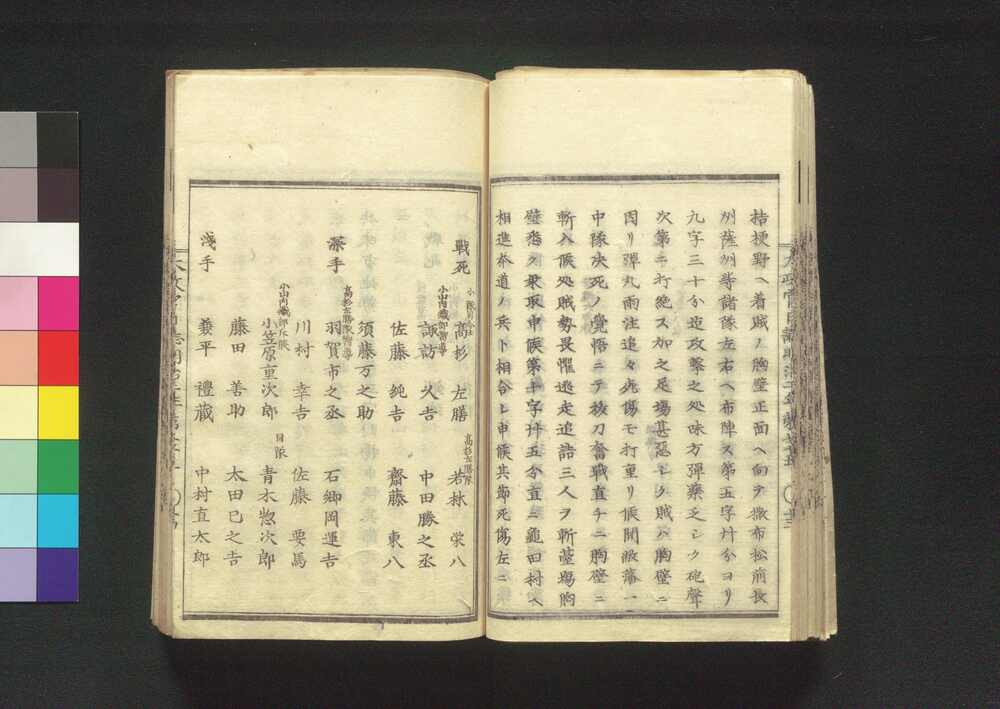 桔梗野ヘ着賊ノ胸壁正面ヘ向テ撒布松前長
州薩州等諸隊左右ヘ布陣ス第五字廾分ヨリ
九字三十分迄攻撃之処味方弾薬乏シク砲聲
次第ニ打絶ス加之足場甚惡シク賊ハ胸壁ニ
因リ弾丸雨注追々死傷モ打重リ候間敝藩一
中隊決死ノ覺悟ニテ抜刀奮戰直チニ胸壁ニ
斬入候処賊勢畏懼逃走追詰三人ヲ斬臺場胸
壁悉ク乗取申候第十字廾五分直ニ亀田村ヘ
相進本道ノ兵ト相合シ申候其節死傷左ニ
戰死
高杉左膳
高杉左膳隊
若林栄八
小山内織部嚮導
諏訪火吉
中田勝之丞
佐藤純吉
齋藤東八
須藤万之助
深手
高杉左膳隊嚮導
羽賀市之丞
石郷岡運吉
川村幸吉
佐藤要馬
小山内織部斥候
小笠原重次郎
同隊
青木惣次郎
藤田善助
太田巳之吉
淺手
蒹平禮蔵
中村直太郎